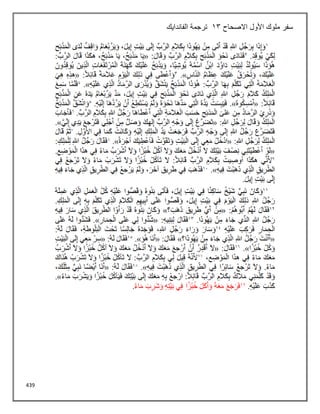 سفر ملوك الأول الاصحاح ١٣ ترجمة الفاندايك
وَإِذَا بِرَجُلِ اللهِ قَدْ أَتَى مِنْ يَهُوذَا بِكَلاَمِ الرَّبِّ إِلَى بَيْتِ إِيلَ، وَيَرُبْعَامُ وَاقِفٌ لَدَى الْمَذْبَحِ
لِكَيْ يُوقِدَ. فَنَادَى نَحْوَ الْمَذْبَحِ بِكَلاَمِ الرَّبِّ وَقَالَ: «يَا مَذْبَحُ، يَا مَذْبَحُ، هكَذَا قَالَ الرَّبُّ:
هُوَذَا سَيُولَدُ لِبَيْتِ دَاوُدَ ابْنٌ اسْمُهُ يُوشِيَّا، وَيَذْبَحُ عَلَيْكَ كَهَنَةَ الْمُرْتَفَعَاتِ الَّذِينَ يُوقِدُونَ
عَلَيْكَ، وَتُحْرَقُ عَلَيْكَ عِظَامُ النَّاسِ». وَأَعْطَى فِي ذلِكَ الْيَوْمِ عَلاَمَةً قَائِلاً: «هذِهِ هِيَ
الْعَلاَمَةُ الَّتِي تَكَلَّمَ بِهَا الرَّبُّ: هُوَذَا الْمَذْبَحُ يَنْشَقُّ وَيُذْرَى الرَّمَادُ الَّذِي عَلَيْهِ». فَلَمَّا سَمِعَ
الْمَلِكُ كَلاَمَ رَجُلِ اللهِ الَّذِي نَادَى نَحْوَ الْمَذْبَحِ فِي بَيْتِ إِيلَ، مَدَّ يَرُبْعَامُ يَدَهُ عَنِ الْمَذْبَحِ
قَائِلاً: «أَمْسِكُوهُ». فَيَبِسَتْ يَدُهُ الَّتِي مَدَّهَا نَحْوَهُ وَلَمْ يَسْتَطِعْ أَنْ يَرُدَّهَا إِلَيْهِ. وَانْشَقَّ الْمَذْبَحُ
وَذُرِيَ الرَّمَادُ مِنْ عَلَى الْمَذْبَحِ حَسَبَ الْعَلاَمَةِ الَّتِي أَعْطَاهَا رَجُلُ اللهِ بِكَلاَمِ الرَّبِّ. فَأَجَابَ
الْمَلِكُ وَقَالَ لِرَجُلِ اللهِ: «تَضَرَّعْ إِلَى وَجْهِ الرَّبِّ إِلهِكَ وَصَلِّ مِنْ أَجْلِي فَتَرْجعَ يَدِي إِلَيَّ».
فَتَضَرَّعَ رَجُلُ اللهِ إِلَى وَجْهِ الرَّبِّ فَرَجَعَتْ يَدُ الْمَلِكِ إِلَيْهِ وَكَانَتْ كَمَا فِي الأَوَّلِ. ثُمَّ قَالَ
الْمَلِكُ لِرَجُلِ اللهِ: «ادْخُلْ مَعِي إِلَى الْبَيْتِ وَتَقَوَّتْ فَأُعْطِيَكَ أُجْرَةً». فَقَالَ رَجُلُ اللهِ لِلْمَلِكِ:
«لَوْ أَعْطَيْتَنِي نِصْفَ بَيْتِكَ لاَ أَدْخُلُ مَعَكَ وَلاَ آكُلُ خُبْزًا وَلاَ أَشْرَبُ مَاءً فِي هذَا الْمَوْضِعِ.
لأَنِّي هكَذَا أُوصِيتُ بِكَلاَمِ الرَّبِّ قَائِلاً: لاَ تَأْكُلْ خُبْزًا وَلاَ تَشْرَبْ مَاءً وَلاَ تَرْجعْ فِي
الطَّرِيقِ الَّذِي ذَهَبْتَ فِيهِ». فَذَهَبَ فِي طَرِيقٍ آخَرَ، وَلَمْ يَرْجعْ فِي الطَّرِيقِ الَّذِي جَاءَ فِيهِ
إِلَى بَيْتِ إِيلَ.
وَكَانَ نَبِيٌّ شَيْخٌ سَاكِنًا فِي بَيْتِ إِيلَ، فَأَتَى بَنُوهُ وَقَصُّوا عَلَيْهِ كُلَّ الْعَمَلِ الَّذِي عَمِلَهُ
رَجُلُ اللهِ ذلِكَ الْيَوْمَ فِي بَيْتِ إِيلَ، وَقَصُّوا عَلَى أَبِيهِمِ الْكَلاَمَ الَّذِي تَكَلَّمَ بِهِ إِلَى الْمَلِكِ.
فَقَالَ لَهُمْ أَبُوهُمْ: «مِنْ أَيِّ طَرِيق ذَهَبَ؟» وَكَانَ بَنُوهُ قَدْ رَأَوْا الطَّرِيقَ الَّذِي سَارَ فِيهِ
رَجُلُ اللهِ الَّذِي جَاءَ مِنْ يَهُوذَا. فَقَالَ لِبَنِيهِ: «شُدُّوا لِي عَلَى الْحِمَارِ». فَشَدُّوا لَهُ عَلَى
الْحِمَارِ فَرَكِبَ عَلَيْهِ وَسَارَ وَرَاءَ رَجُلِ اللهِ، فَوَجَدَهُ جَالِسًا تَحْتَ الْبَلُّوطَةِ، فَقَالَ لَهُ:
«أَأَنْتَ رَجُلُ اللهِ الَّذِي جَاءَ مِنْ يَهُوذَا؟» فَقَالَ: «أَنَا هُوَ». فَقَالَ لَهُ: «سِرْ مَعِي إِلَى الْبَيْتِ
وَكُلْ خُبْزًا». فَقَالَ: «لاَ أَقْدِرُ أَنْ أَرْجعَ مَعَكَ وَلاَ أَدْخُلُ مَعَكَ وَلاَ آكُلُ خُبْزًا وَلاَ أَشْرَبُ
مَعَكَ مَاءً فِي هذَا الْمَوْضِعِ، لأَنَّهُ قِيلَ لِي بِكَلاَمِ الرَّبِّ: لاَ تَأْكُلْ خُبْزًا وَلاَ تَشْرَبْ هُنَاكَ
مَاءً. وَلاَ تَرْجعْ سَائِرًا فِي الطَّرِيقِ الَّذِي ذَهَبْتَ فِيهِ». فَقَالَ لَهُ: «أَنَا أَيْضًا نَبِيٌّ مِثْلُكَ،
وَقَدْ كَلَّمَنِي مَلاَكٌ بِكَلاَمِ الرَّبِّ قَائِلاً: ارْجعْ بِهِ مَعَكَ إِلَى بَيْتِكَ فَيَأْكُلَ خُبْزًا وَيَشْرَبَ مَاءً».
كَذَبَ عَلَيْهِ. فَرَجَعَ مَعَهُ وَأَكَلَ خُبْزًا فِي بَيْتِهِ وَشَرِبَ مَاءً.
439